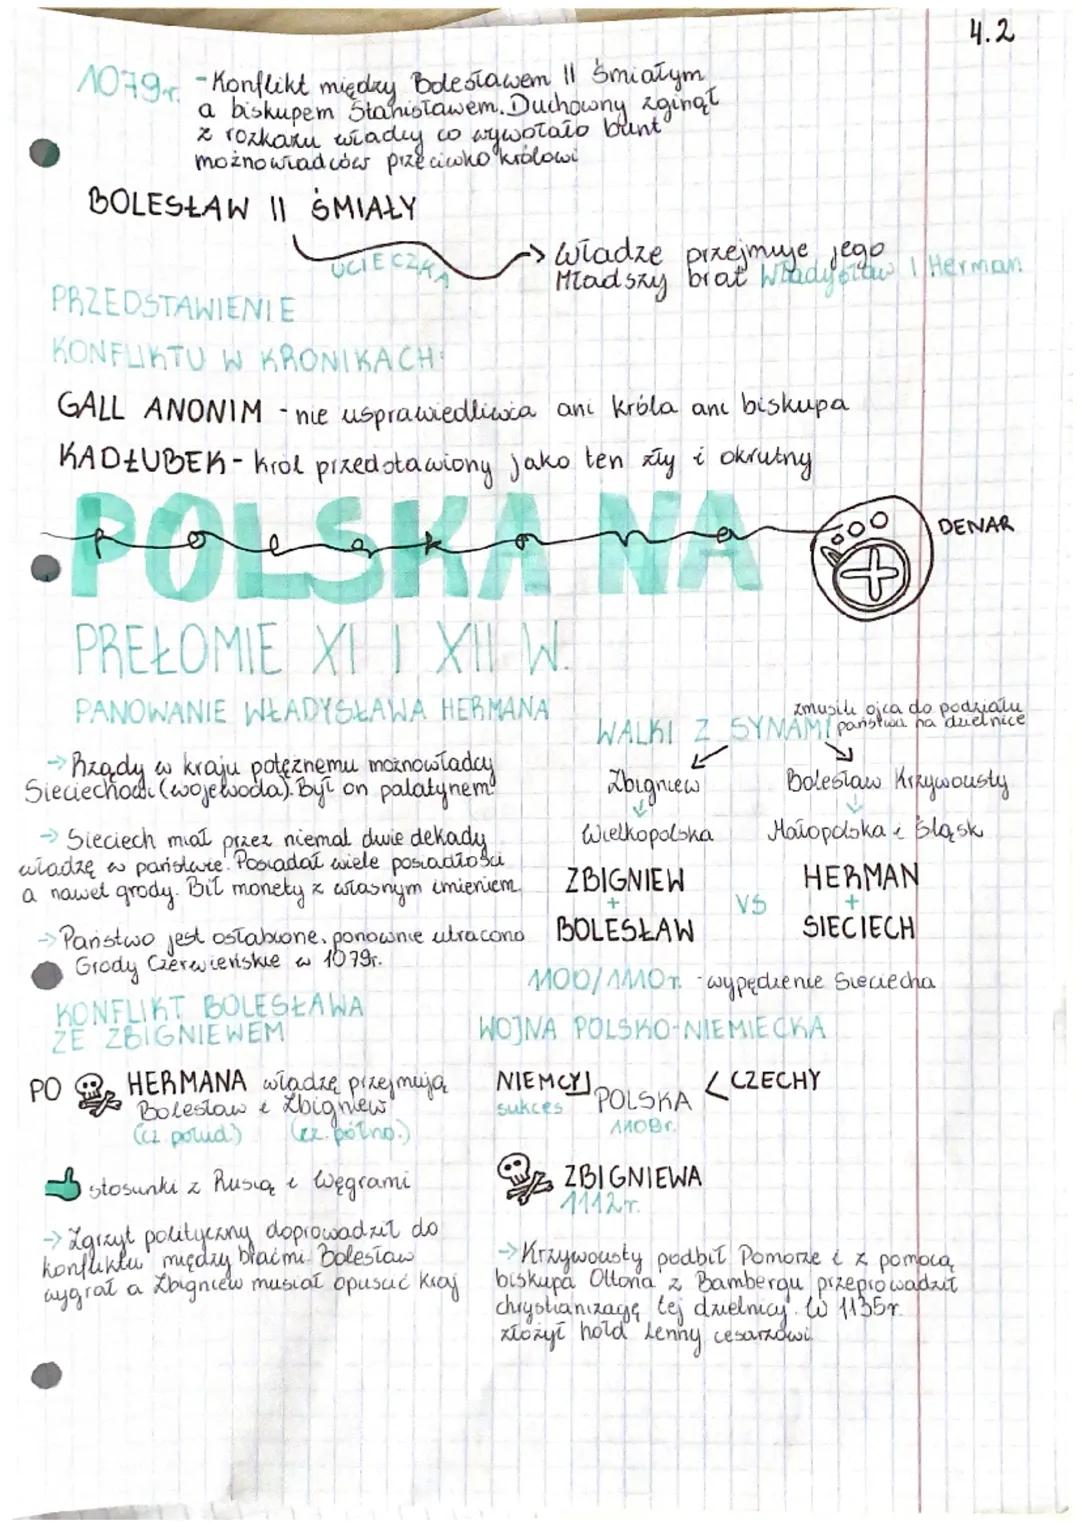 4.2
1079r. - Konflikt między Bolesławem II Śmiałym
a biskupem Stanisławem. Duchowny zginął
z rozkazu władcy co wywołało bunt
możnowładców przeciwko królowi
BOLESŁAW II ŚMIAŁY
UCIECZKA
→ Władze przejmuje jego
Mładszy brat Władysław I Herman
PRZEDSTAWIENIE
KONFLIKTU W KRONIKACH:
GALL ANONIM - nie usprawiedliwia ani króla ani biskupa
KADŁUBEK - król przedstawiony jako ten zły i okrutny
POLSKA NA
DENAR
PREŁOMIE XI I XII W.
PANOWANIE WŁADYSŁAWA HERMANA
→ Rządy w kraju potężnemu możnowładcy
Sieciechowi (wojewoda). Był on palatynem!
→ Sieciech miał przez niemal dwie dekady
władzę w państwie. Posiadał wiele posiadłości
a nawet grody. Bił monety z własnym imieniem.
→ Państwo jest osłabione. ponownie utracono
Grody Czerwieńskie w 1079r.
WALKI Z SYNAMI
zmusili ojca do podziału
państwa na dzielnice
Zbigniew
Bolesław Krzywousty
Wielkopolska
Małopolska i Śląsk
ZBIGNIEW
+
BOLESŁAW
VS
HERMAN
+
SIECIECH
1100/1110r. - wypędzenie Sieciecha
KONFLIKT BOLESŁAWA
ZE ZBIGNIEWEM
PO HERMANA władzę przejmują
Bolesław i Zbigniew
(cz. połud.) (cz. półno.)
stosunki z Rusią i Węgrami
→ Zgrzyt polityczny doprowadził do
konfliktu między braćmi. Bolesław
wygrał a Zbigniew musiał opuścić kraj
WOJNA POLSKO-NIEMIECKA
NIEMCY POLSKA < CZECHY
sukces 1108r.
ZBIGNIEWA
1112r.
→ Krzywousty podbił Pomorze i z pomocą
biskupa Ottona z Bambergu przeprowadził
chrystianizację tej dzielnicy. W 1135r.
złożył hołd lenny cesarzowi